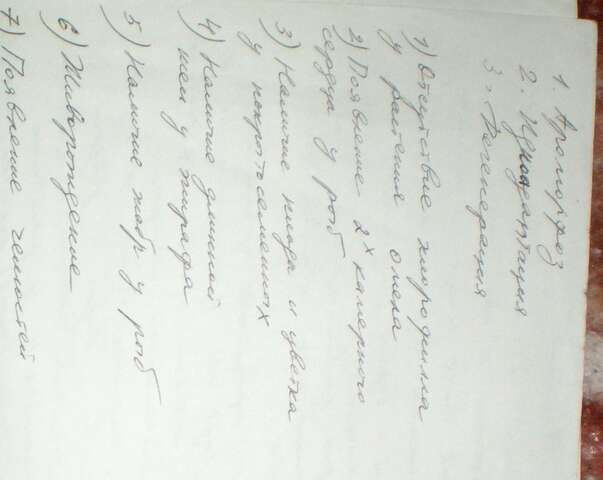 1. Ароморфоз
2. Идиоадаптация
3. Дегенерация
1) Отсутствие хлорофилла
у растения омела
2) Появление 2х камерного
сердца у рыб
3) Наличие плода и цветка
у покрытосеменных
4) Наличие длинной
шеи у жирафа
5) Наличие жабр у рыб
6) Живорождение
7) Появление челюстей